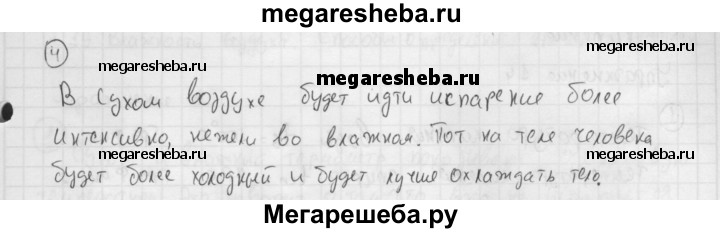 megaresheba.ru
4
megaresheba.ru
megaresheba.ru
В сухом воздухе будет идти испарение более
интенсивно, нежели во влажном. Пот на теле человека
megaresheba.ru
megaresheba.ru
будет более холодный и будет лучше охлаждать тело.
Мегарешеба.ру